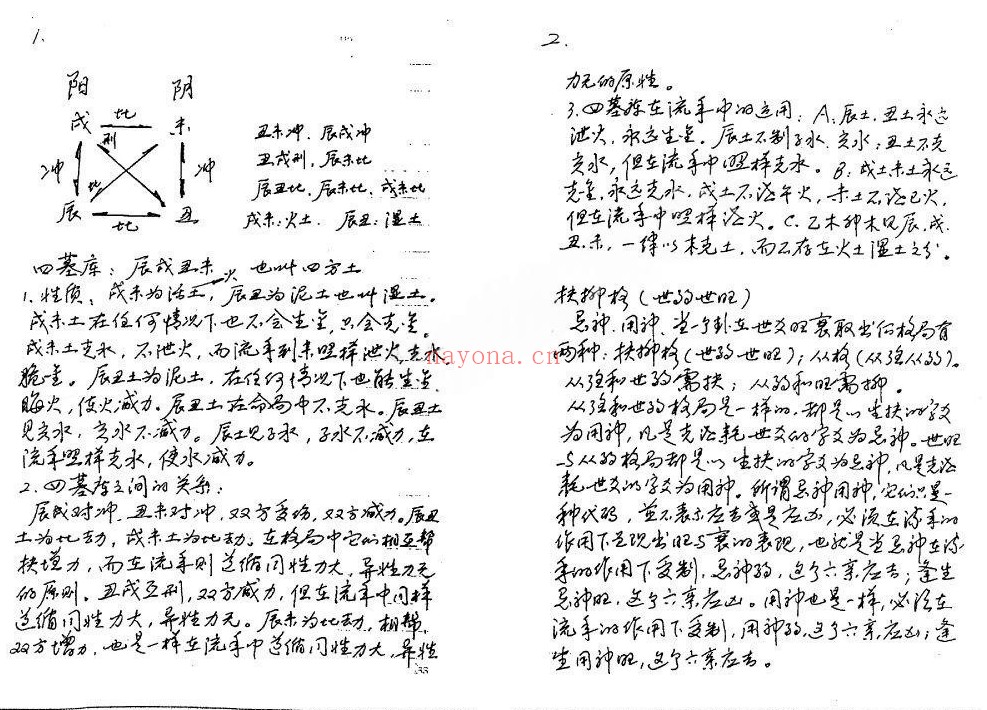 1.
阳 阴
戌 比 未
刑
冲 冲
比
辰 比 丑
丑未冲、辰戌冲
丑戌刑、辰未比
辰丑比、辰未比、戌未比
戌未:火土、辰丑:湿土
四墓库:辰戌丑未 也叫四方土
火
1.性质、戌未为活土,辰丑为泥土也叫湿土。
戌未土在任何情况下也不会生金,只会克金。
戌未土克水,不泄火,而流年到来照样泄火克水
脆金。辰丑土为泥土,在任何情况下也能生金、
晦火,使火减力。辰丑土在命局中不克水。辰丑土
见亥水,亥水不减力。辰土见子水,子水不减力,在
流年照样克水,使水减力。
2.四墓库之间的关系:
辰戌对冲、丑未对冲,双方受伤,双方减力。辰丑
土为比劫,戌未土为比劫。在格局中它们相互帮
扶增力,而在流年则遵循同性力大,异性力无
的原则。丑戌互刑,双方减力,但在流年中同样
遵循同性力大,异性力无。辰未为比劫,相帮,
双方增力,也是一样在流年中遵循同性力大,异性
2.
力无的原性。
3.四墓库在流年中的运用:A、辰土、丑土永远
泄火,永远生金。辰土不制子水、亥水;丑土不克
亥水,但在流年中照样克水。B、戌土未土永远
克金,永远克水,戌土不泄午火,未土不泄巳火,
但在流年中照样泄火。C、乙木卯木见辰、戌、
丑、未,一律以木克土,而不存在火土湿土之分。
扶抑格(世弱世旺)
忌神、用神,当一个卦在世爻旺衰取出后格局有
两种:扶抑格(世弱世旺);从格(从强从弱)。
从强和世弱需扶;从弱和旺需抑。
从强和世弱格局是一样的,都是以生扶的字爻
为用神,凡是克泄耗世爻的字爻为忌神。世旺
与从弱格局都是以生扶的字爻为忌神,凡是克泄
耗世爻的字爻为用神。所谓忌神用神,它们只是一
种代码,并不表示应吉或是应凶,必须在流年的
作用下呈现出旺与衰的表现,也就是当忌神在流
年的作用下受制,忌神弱,这个六亲应吉;逢生
忌神旺,这个六亲应凶。用神也是一样,必须在
流年的作用下受制,用神弱,这个六亲应凶;逢
生用神旺,这个六亲应吉。
nayona.cn